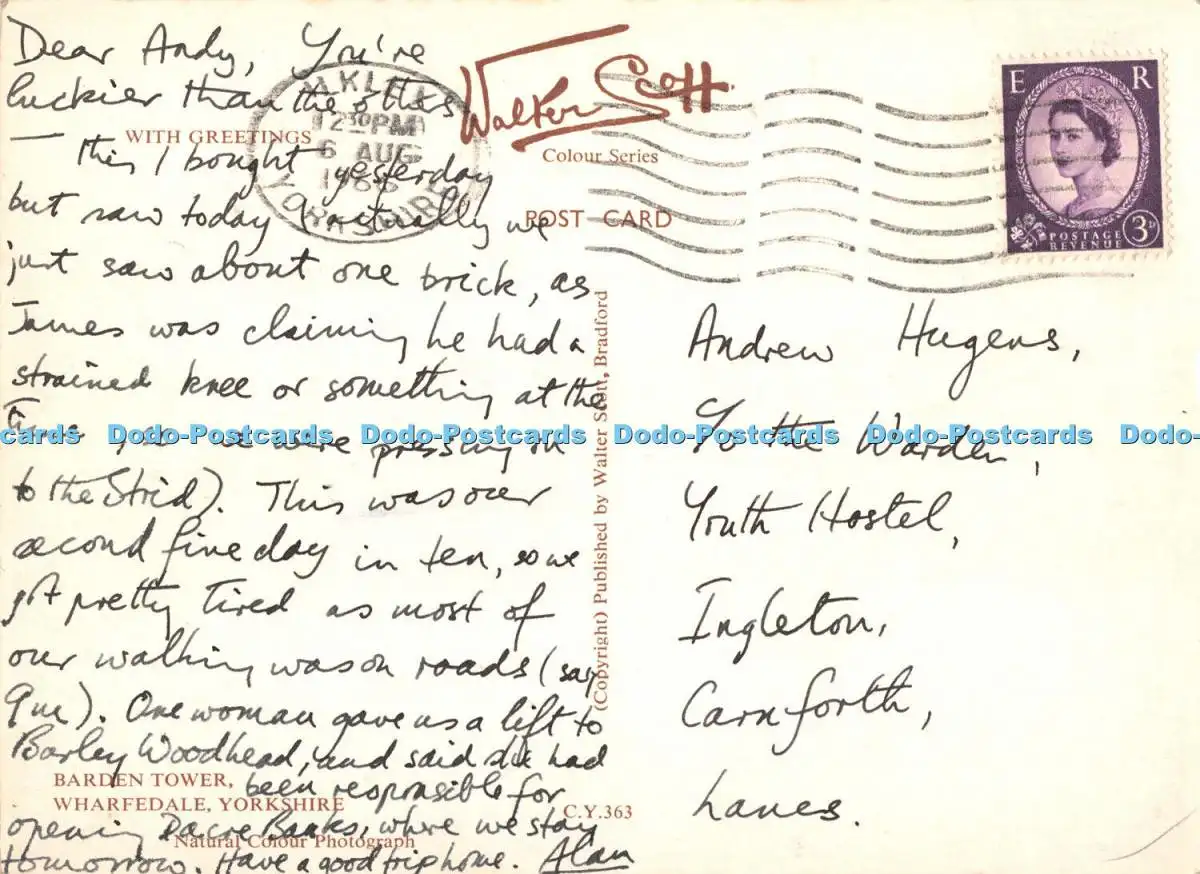 Dear Andy, You're
luckier than the others
— this I bought yesterday
but saw today (actually we
just saw about one brick, as
James was claiming he had a
strained knee or something at the
time, so we were pressing on
to the Strid). This was our
second fine day in ten, so we
got pretty tired as most of
our walking was on roads (say
9m). One woman gave us a lift to
Barley Woodhead, and said she had
been responsible for
opening Dacre Banks, where we stay
tomorrow. Have a good trip home. Alan
WITH GREETINGS
ILKLEY
12 30 PM
6 AUG
YORKSHIRE
Walter Scott
Colour Series
POST CARD
(Copyright) Published by Walter Scott, Bradford
E R
POSTAGE
REVENUE
3D
Andrew Hugens,
c/o the Warden,
Youth Hostel,
Ingleton,
Carnforth,
Lancs.
BARDEN TOWER,
WHARFEDALE, YORKSHIRE
C.Y.363
Natural Colour Photograph
cards Dodo-Postcards Dodo-Postcards Dodo-Postcards Dodo-Postcards Dodo-